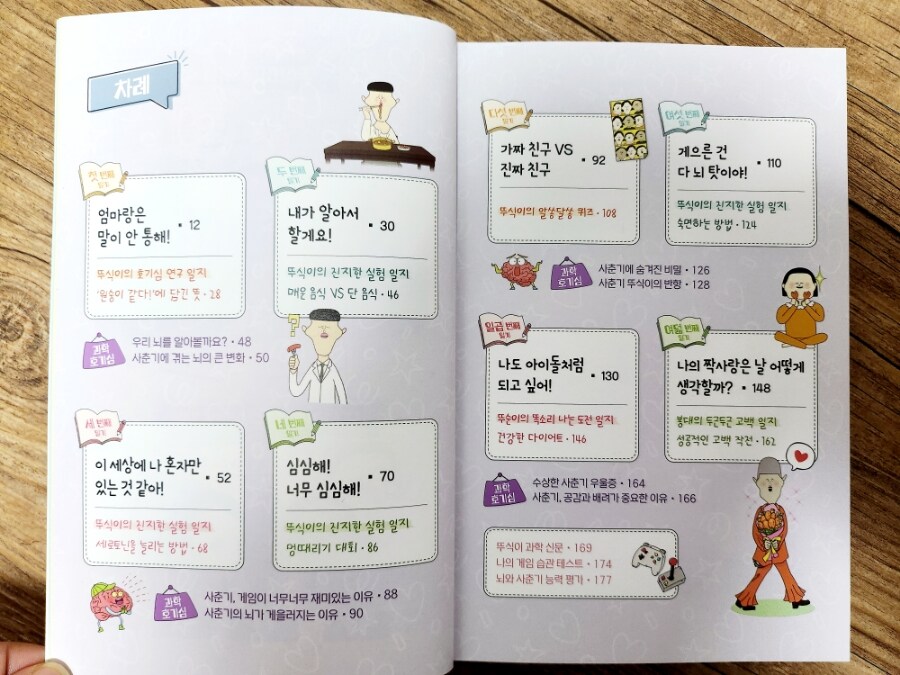 차례
첫 번째
일기
엄마랑은
말이 안 통해! • 12
뚜식이의 호기심 연구 일지
'원숭이 같다!'에 담긴 뜻 • 28
두 번째
일기
내가 알아서
할게요! • 30
뚜식이의 진지한 실험 일지
매운 음식 VS 단 음식 • 46
과학
호기심
우리 뇌를 알아볼까요? • 48
사춘기에 겪는 뇌의 큰 변화 • 50
세 번째
일기
이 세상에 나 혼자만
있는 것 같아! • 52
뚜식이의 진지한 실험 일지
세로토닌을 늘리는 방법 • 68
네 번째
일기
심심해!
너무 심심해! • 70
뚜식이의 진지한 실험 일지
멍때리기 대회 • 86
과학
호기심
사춘기, 게임이 너무너무 재미있는 이유 • 88
사춘기의 뇌가 게을러지는 이유 • 90
다섯 번째
일기
가짜 친구 VS
진짜 친구 • 92
뚜식이의 알쏭달쏭 퀴즈 • 108
여섯 번째
일기
게으른 건
다 뇌 탓이야! • 110
뚜식이의 진지한 실험 일지
숙면하는 방법 • 124
과학
호기심
사춘기에 숨겨진 비밀 • 126
사춘기 뚜식이의 반항 • 128
일곱 번째
일기
나도 아이돌처럼
되고 싶어! • 130
뚜순이의 똑소리 나는 도전 일지
건강한 다이어트 • 146
여덟 번째
일기
나의 짝사랑은 날 어떻게
생각할까? • 148
봉대의 두근두근 고백 일지
성공적인 고백 작전 • 162
과학
호기심
수상한 사춘기 우울증 • 164
사춘기, 공감과 배려가 중요한 이유 • 166
뚜식이 과학 신문 • 169
나의 게임 습관 테스트 • 174
뇌와 사춘기 능력 평가 • 177